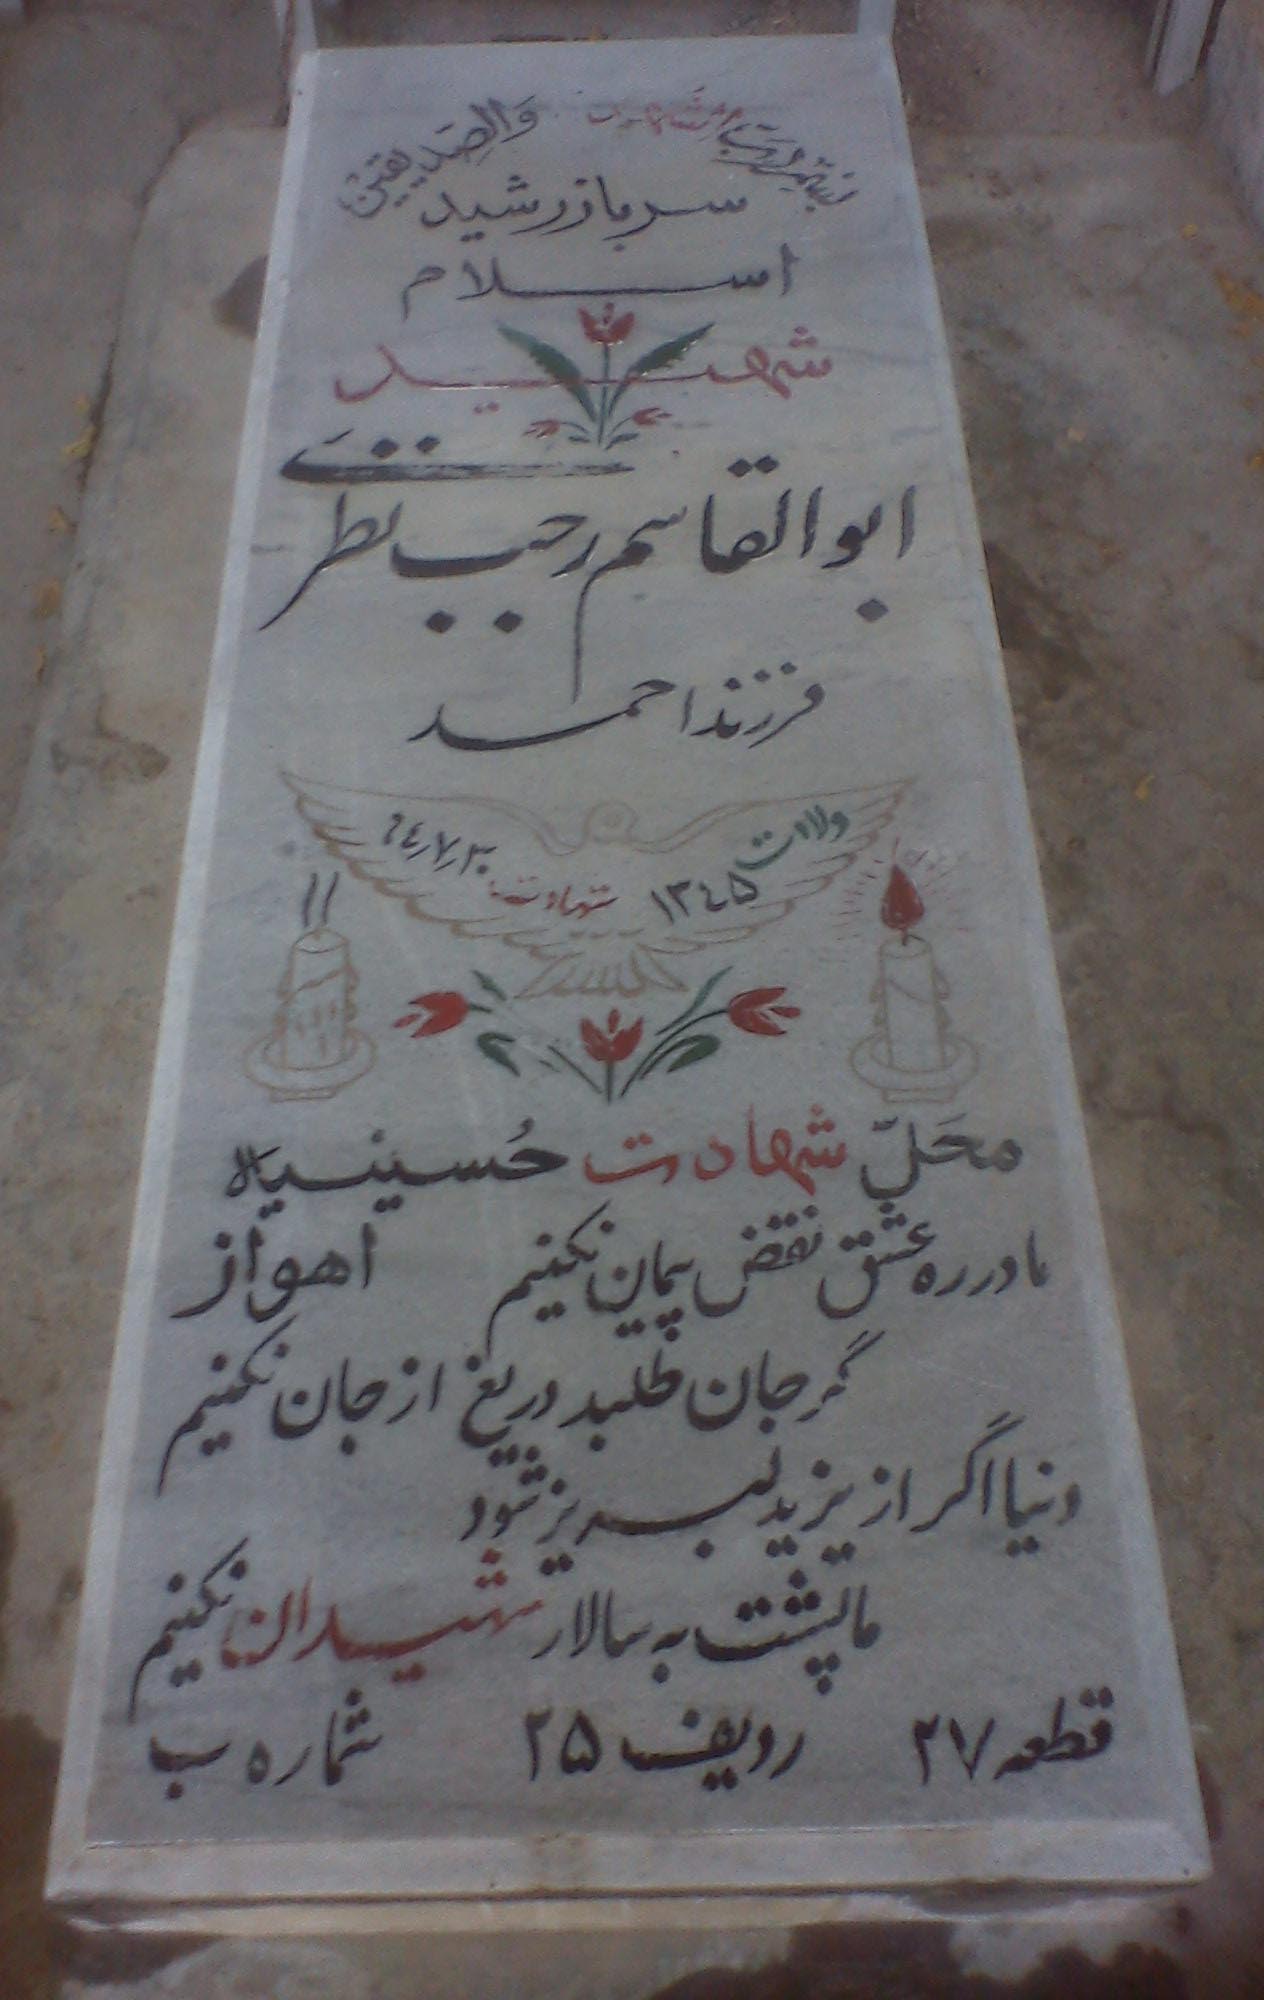 بسم رب الشهداء والصدیقین
سرباز رشید
اسلام
شهید
ابوالقاسم رجب نظری
فرزند احمد
ولادت ۱۳۴۵ شهادت ۶٤٫۷٫۳۰
محَلّ شهادت حُسینیه
اهواز
ما در ره عشق نقض پیمان نکنیم
گر جان طلبد دریغ از جان نکنیم
دنیا اگر از یزید لبریز شود
ما پشت به سالار شهیدان نکنیم
قطعه ۲۷ ردیف ۲۵ شماره ب